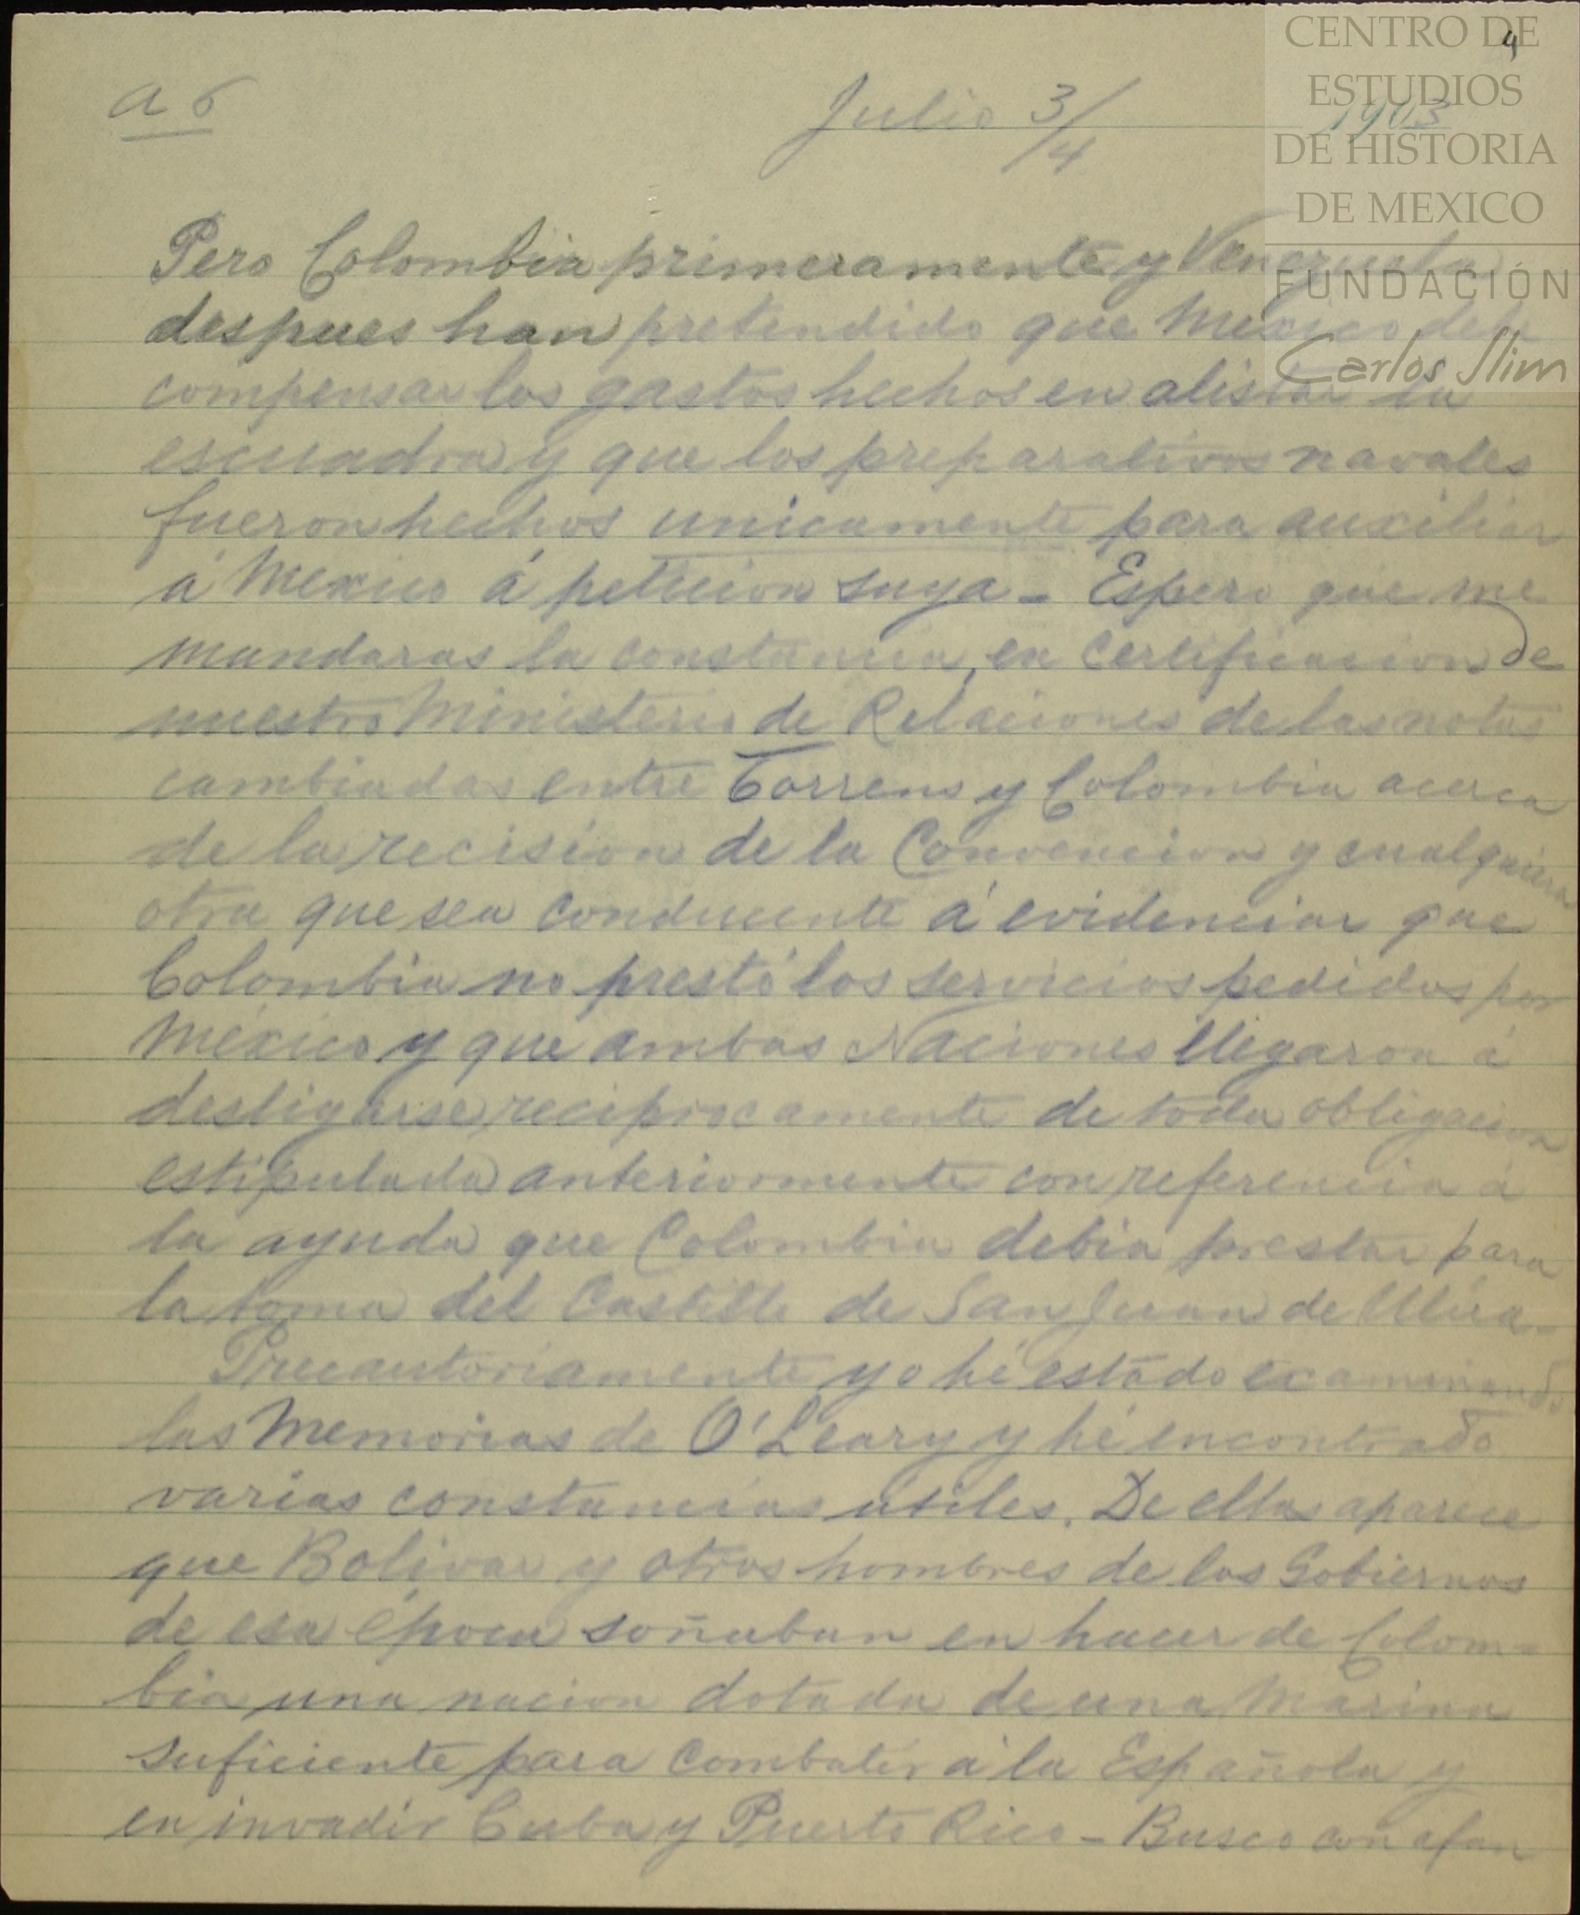 CENTRO DE
ESTUDIOS
DE HISTORIA
DE MEXICO
FUNDACIÓN
Carlos Slim
4
a 6
Julio 3/4
1903
Pero Colombia primeramente y Venezuela
despues han pretendido que Mexico debe
compensar los gastos hechos en alistar la
escuadra y que los preparativos navales
fueron hechos unicamente para auxiliar
á Mexico á peticion suya - Espero que me
mandaras la constancia, en certificacion de
nuestro Ministerio de Relaciones de las notas
cambiadas entre Torrens y Colombia acerca
de la recision de la Convencion y cualquiera
otra que sea conducente á evidenciar que
Colombia no prestó los servicios pedidos por
México y que ambas Naciones llegaron á
desligarse reciprocamente de toda obligacion
estipulada anteriormente con referencia á
la ayuda que Colombia debia prestar para
la toma del Castillo de San Juan de Ulúa -
Precautoriamente yo hé estado examinando
las Memorias de O'Leary y hé encontrado
varias constancias utiles. De ellas aparece
que Bolivar y otros hombres de los Gobiernos
de esa época soñaban en hacer de Colom-
bia una nacion dotada de una Marina
suficiente para combatir á la Española y
en invadir Cuba y Puerto Rico - Busco con afan